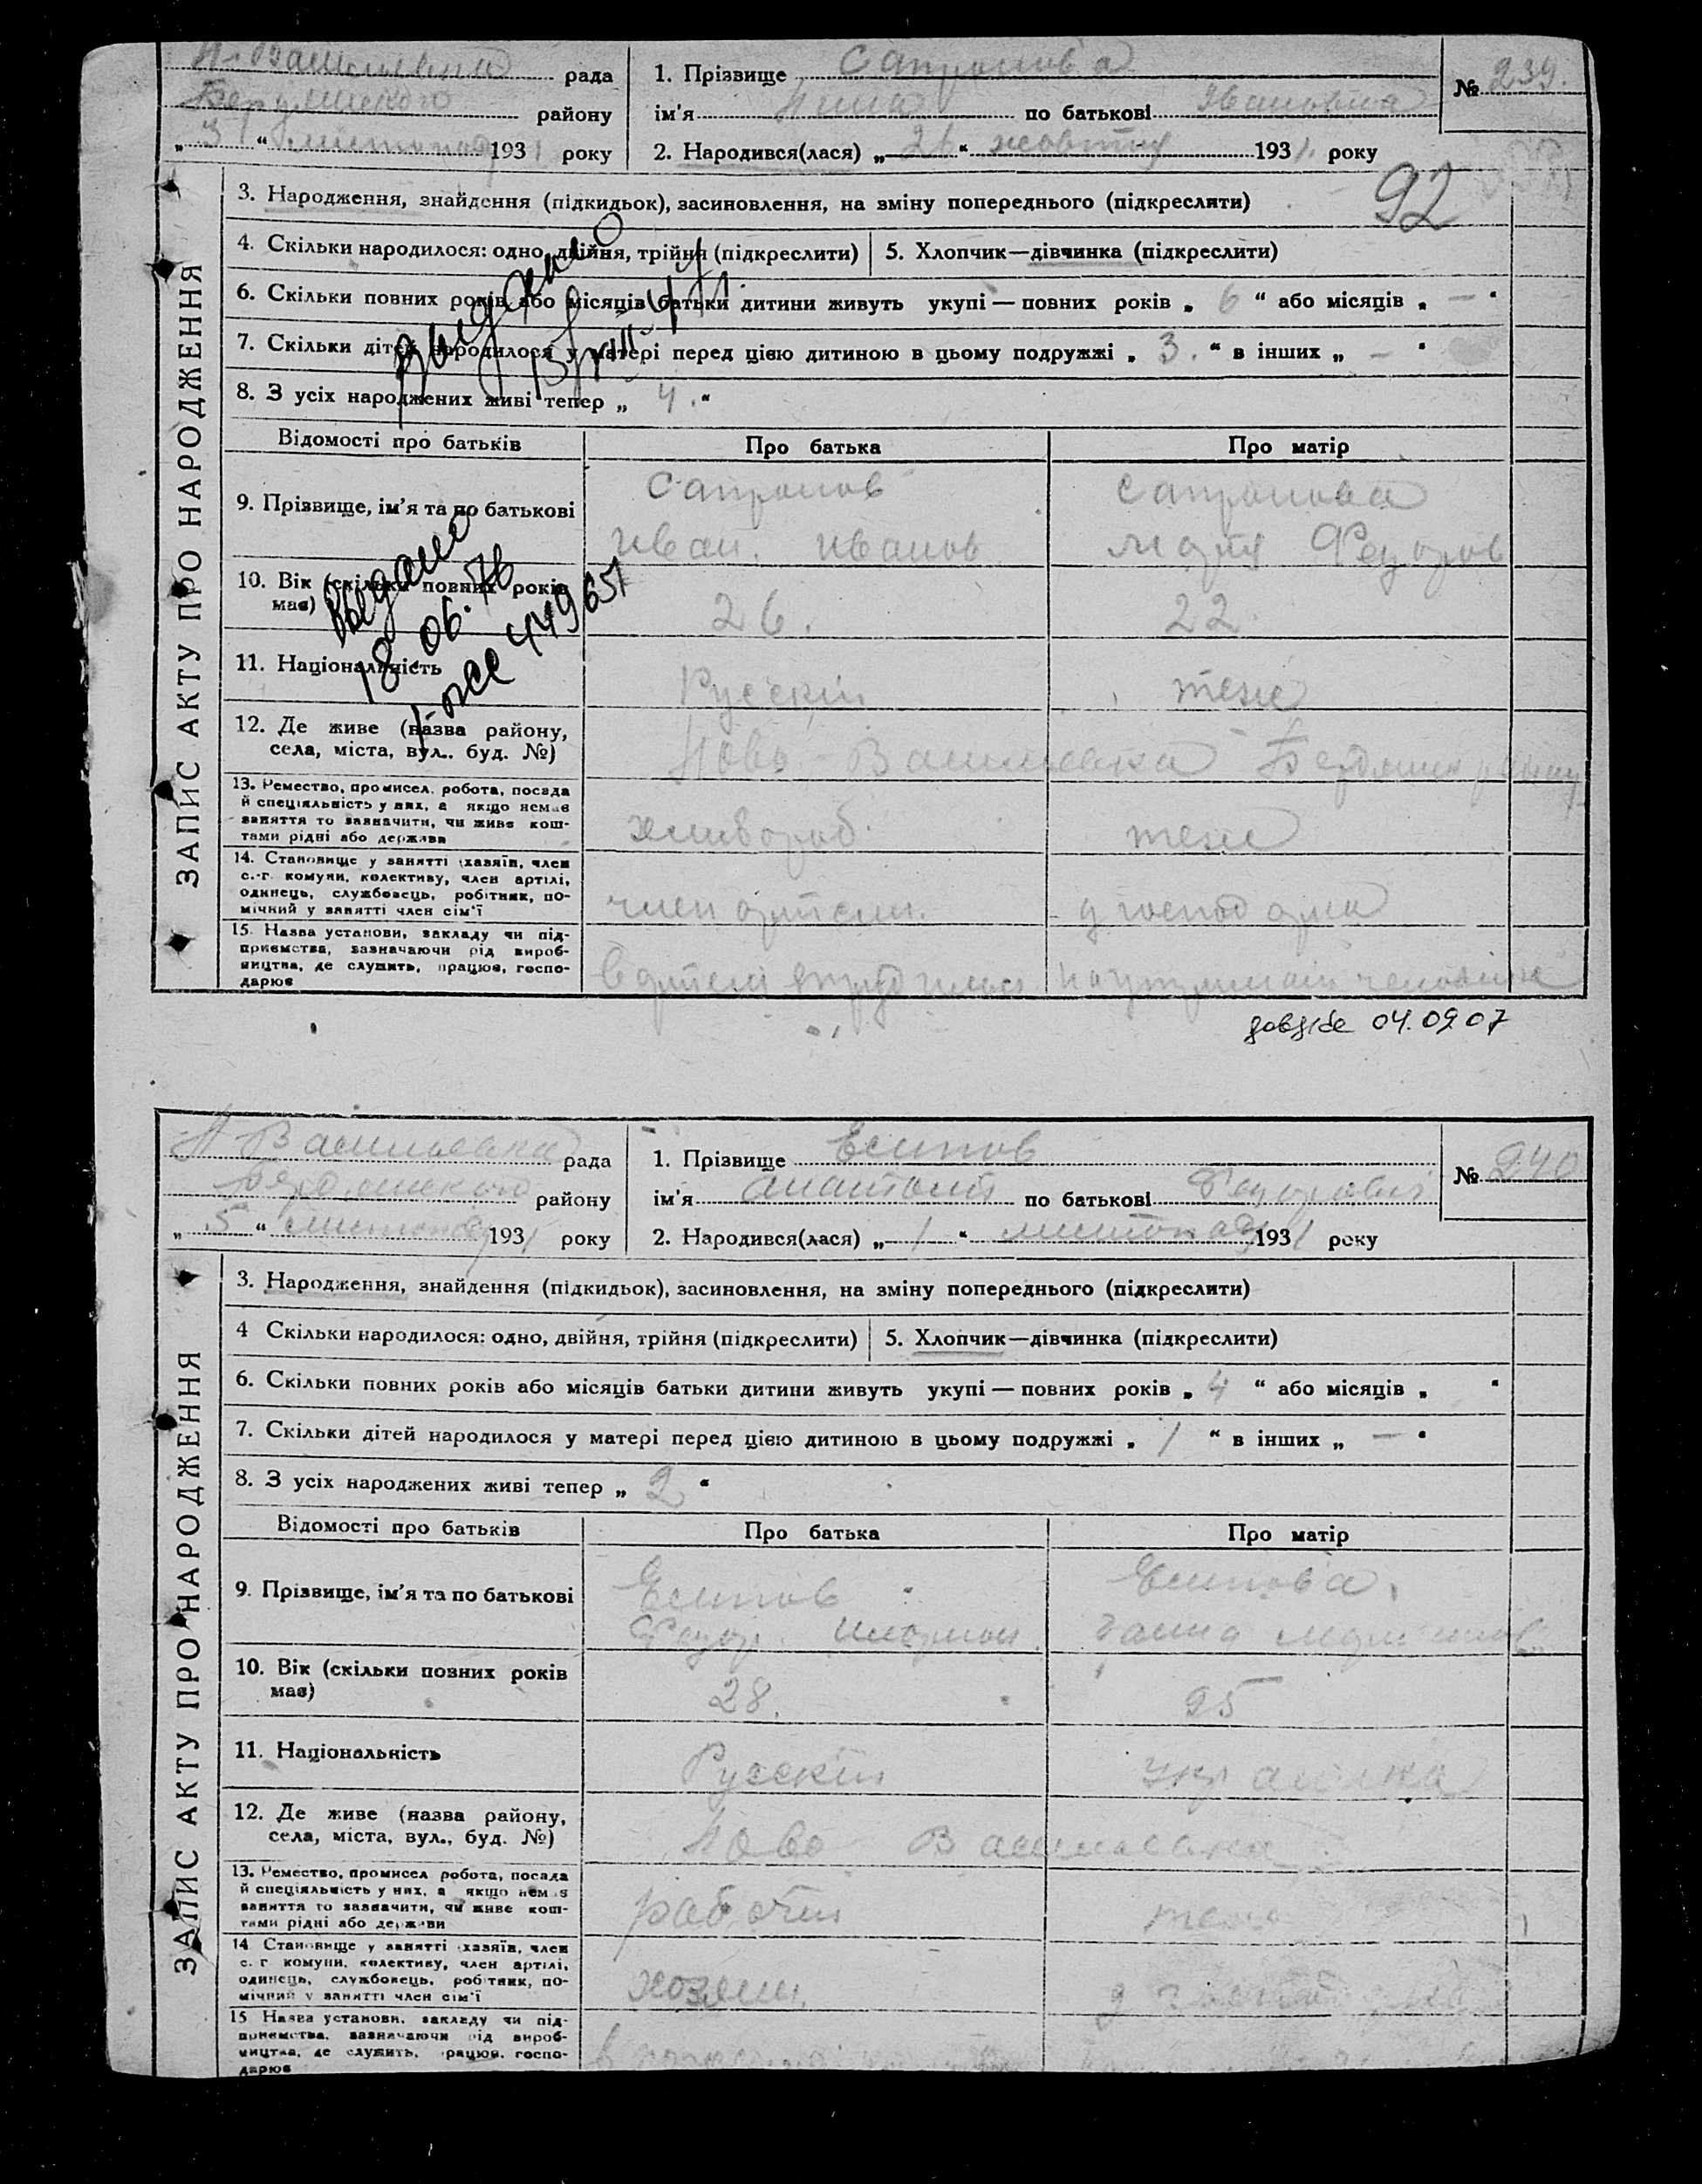 Н-Василівка рада
Бердянського району
„ 3 “ листопад 1931 року
1. Прізвище Сапронова
№ 239.
ім'я Нина по батькові Івановна
2. Народився(лася) „ 26 “ жовтня 1931. року
92
3. Народження, знайдення (підкидьок), засиновлення, на зміну попереднього (підкреслити)
4. Скільки народилося: одно, двійня, трійня (підкреслити)
5. Хлопчик—дівчинка (підкреслити)
6. Скільки повних років або місяців батьки дитини живуть укупі — повних років „ 6 “ або місяців „ — “
7. Скільки дітей народилося у матері перед цією дитиною в цьому подружжі „ 3. “ в інших „ — “
8. З усіх народжених живі тепер „ 4. “
Відомості про батьків
Про батька
Про матір
9. Прізвище, ім'я та по батькові
Сапронов
Иван. Иванов
Сапронова
Федоров
10. Вік (скільки повних років
має)
26.
22.
Выдано
18.06.76
449651
11. Національність
Русскій
теж
12. Де живе (назва району,
села, міста, вул., буд. №)
Ново-Василевка
13. Ремество, промисел, робота, посада
й спеціяльність у них, а якщо немає
заняття то зазначити, чи живе кош-
тами рідні або держави
хлібороб.
теж
14. Становище у занятті (хазяїн, член
с.-г. комуни, колективу, член артілі,
одинець, службовець, робітник, по-
мічний у занятті член сім'ї
член артели.
15. Назва установи, закладу чи під-
приємства, зазначаючи рід вироб-
ництва, де служить, працює, госпо-
дарює
ЗАПИС АКТУ ПРО НАРОДЖЕННЯ
04.09.07
Н Василевка рада
Бердянського району
„ 5 “ листопад 1931 року
1. Прізвище Есипов
№ 240
ім'я Анатолій по батькові Федорович
2. Народився(лася) „ 1 “ листопад 1931 року
3. Народження, знайдення (підкидьок), засиновлення, на зміну попереднього (підкреслити)
4 Скільки народилося: одно, двійня, трійня (підкреслити)
5. Хлопчик—дівчинка (підкреслити)
6. Скільки повних років або місяців батьки дитини живуть укупі — повних років „ 4 “ або місяців „ “
7. Скільки дітей народилося у матері перед цією дитиною в цьому подружжі „ 1 “ в інших „ — “
8. З усіх народжених живі тепер „ 2 “
Відомості про батьків
Про батька
Про матір
9. Прізвище, ім'я та по батькові
Есипов
Федор
Есипова.
10. Вік (скільки повних років
має)
28.
25
11. Національність
Русскій
українка
12. Де живе (назва району,
села, міста, вул., буд. №)
Ново Василевка
13. Ремество, промисел робота, посада
й спеціяльність у них, а якщо немає
заняття то зазначити, чи живе кош-
тами рідні або держави
рабочій
теж
14 Становище у занятті хазяїн, член
с. г комуни, колективу, член артілі,
одинець, службовець, робітник, по-
мічний у занятті член сім'ї
хозяин.
15 Назва установи, закладу чи під-
приємства, зазначаючи рід вироб-
ництва, де служить, працює, госпо-
дарює
ЗАПИС АКТУ ПРО НАРОДЖЕННЯ